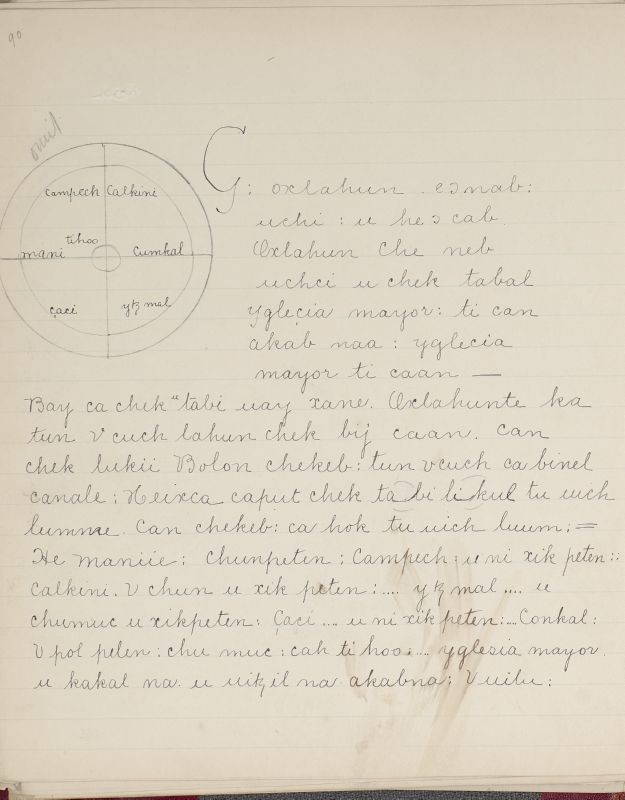 90
omit
campech Calkini
tihoo
mani cumkal
çaci ytz mal
G: oxlahun . eɔnab:
uchi : u heɔ cab
Oxlahun Che neb
uchci u chek tabal
Yglecia mayor: ti can
akab naa : yglecia
mayor ti caan —
Bay ca chek "tabi uay xane. Oxlahunte ka
tun V cuch lahun chek bij caan. Can
chek lukii Bolon chekeb: tun vcuch ca binel
canale; Heixca caput chek ta bi li kul tu uich
lumme. Can chekeb: ca hok tu uich luum: =
He maniie: Chunpeten: Campech: u ni xik peten::
Calkini. V chun u xik peten:.... ytz mal .... u
chumuc u xikpeten: Çaci .... u ni xik peten:... Conkal:
V pol peten: chu muc : cah ti hoo:.... yglesia mayor.
u kakal na. u uitz il na akabna; V uilu: